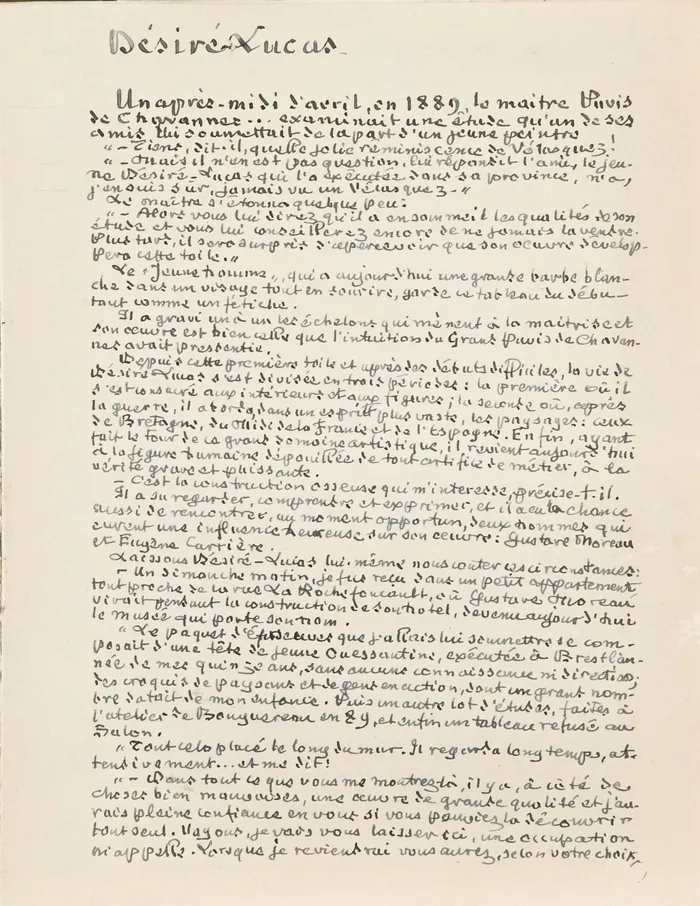 Désiré-Lucas
Un après-midi d'avril, en 1889, le maître Puvis
de Chavannes... examinait une étude qu'un de ses
amis lui soumettait de la part d'un jeune peintre
"- Tiens, dit-il, quelle jolie réminiscence de Vélasquez!
"- Mais il n'en est pas question, lui répondit l'ami, le jeu-
ne Désiré-Lucas qui l'a exécutée dans sa province, n'a,
j'en suis sûr, jamais vu un Vélasquez-"
Le maître s'étonna quelque peu:
"- Alors vous lui direz qu'il a en sommeil les qualités de son
étude et vous lui conseillerez encore de ne jamais la vendre.
Plus tard, il sera surpris d'apercevoir que son œuvre dévelop-
pera cette toile."
Le "Jeune homme", qui a aujourd'hui une grande barbe blan-
che dans un visage tout en sourire, garde ce tableau du débu-
tant comme un fétiche.
Il a gravi un à un les échelons qui mènent à la maîtrise et
son œuvre est bien celle que l'intuition du Grand Puvis de Chavan-
nes avait pressentie.
Depuis cette première toile et après des débuts difficiles, la vie de
Désiré-Lucas s'est divisée en trois périodes: la première où il
s'est consacré aux intérieurs et aux figures; la seconde où, après
la guerre, il aborda, dans un esprit plus vaste, les paysages: ceux
de Bretagne, du Midi de la France et de l'Espagne. Enfin, ayant
fait le tour de ce grand domaine artistique, il revient aujourd'hui
à la figure humaine dépouillée de tout artifice de métier, à la
vérité grave et puissante.
- C'est la construction osseuse qui m'intéresse, précise-t-il.
Il a su regarder, comprendre et exprimer, et il a eu la chance
aussi de rencontrer, au moment opportun, deux hommes qui
eurent une influence heureuse sur son œuvre: Gustave Moreau
et Eugène Carrière.
Laissons Désiré-Lucas lui-même nous conter ces circonstances:
- Un dimanche matin, je fus reçu dans un petit appartement
tout proche de la rue La Rochefoucault, où Gustave Moreau
vivait pendant la construction de son hôtel, devenu aujourd'hui
le musée qui porte son nom.
"Le paquet d'épreuves que j'allais lui soumettre se com-
posait d'une tête de jeune Ouessantine, exécutée à Brest l'an-
née de mes quinze ans, sans aucune connaissance ni direction;
des croquis de paysans et de gens en action, dont un grand nom-
bre datait de mon enfance. Puis un autre lot d'études, faites à
l'atelier de Bouguereau en 89, et enfin un tableau refusé au
Salon.
"Tout cela placé le long du mur. Il regarda longtemps, at-
tentivement... et me dit!
"- Dans tout ce que vous me montrez là, il y a, à côté de
choses bien mauvaises, une œuvre de grande qualité et j'au-
rais pleine confiance en vous si vous pouviez la découvrir
tout seul. Voyons, je vais vous laisser ici, une occupation
m'appelle. Lorsque je reviendrai vous aurez, selon votre choix,